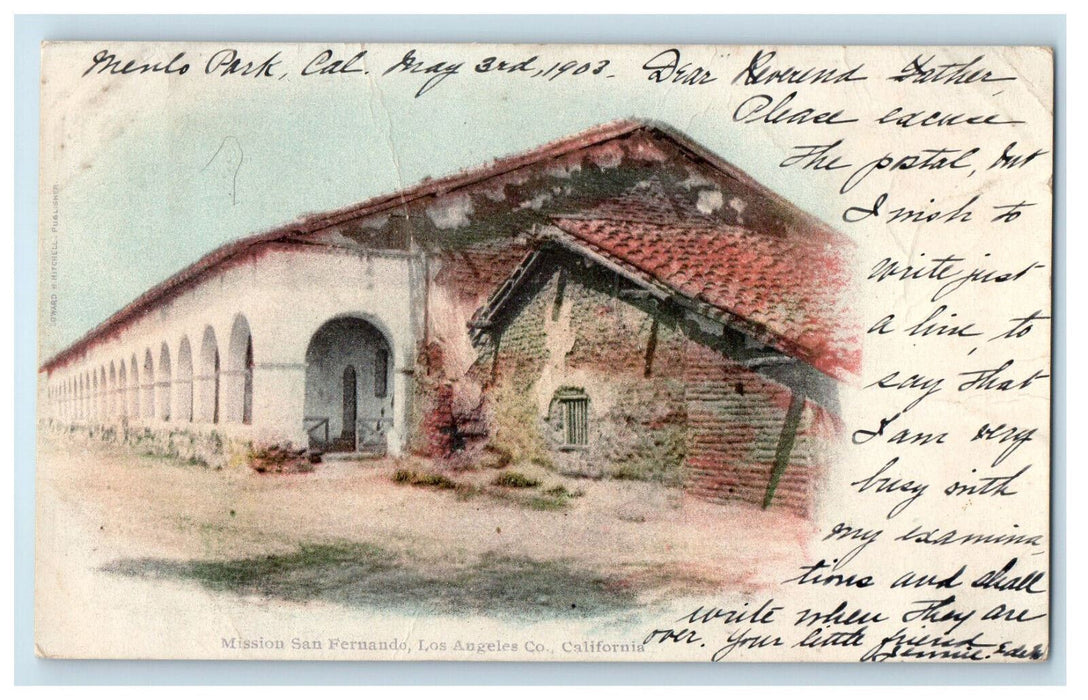 Menlo Park, Cal. May 3rd, 1903. Dear Reverend Father,
Please excuse
the postal, but
I wish to
write just
a line, to
say that
I am very
busy with
my examina-
tions and shall
write when they are
over. Your little friend
Mission San Fernando, Los Angeles Co., California
EDWARD H MITCHELL, PUBLISHER.